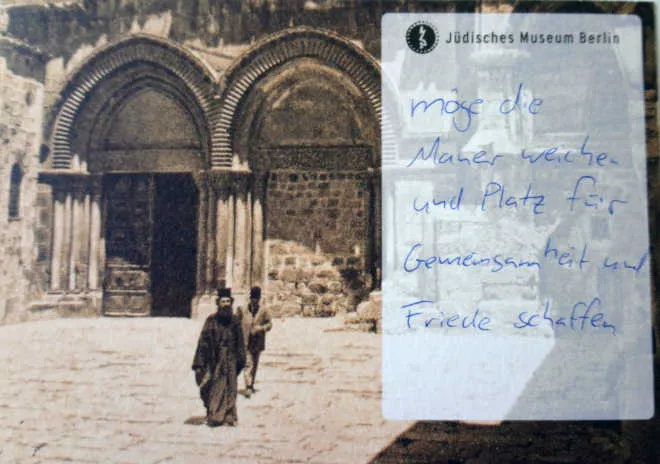 Jüdisches Museum Berlin
möge die
Mauer weichen
und Platz für
Gemeinsamheit und
Friede schaffen